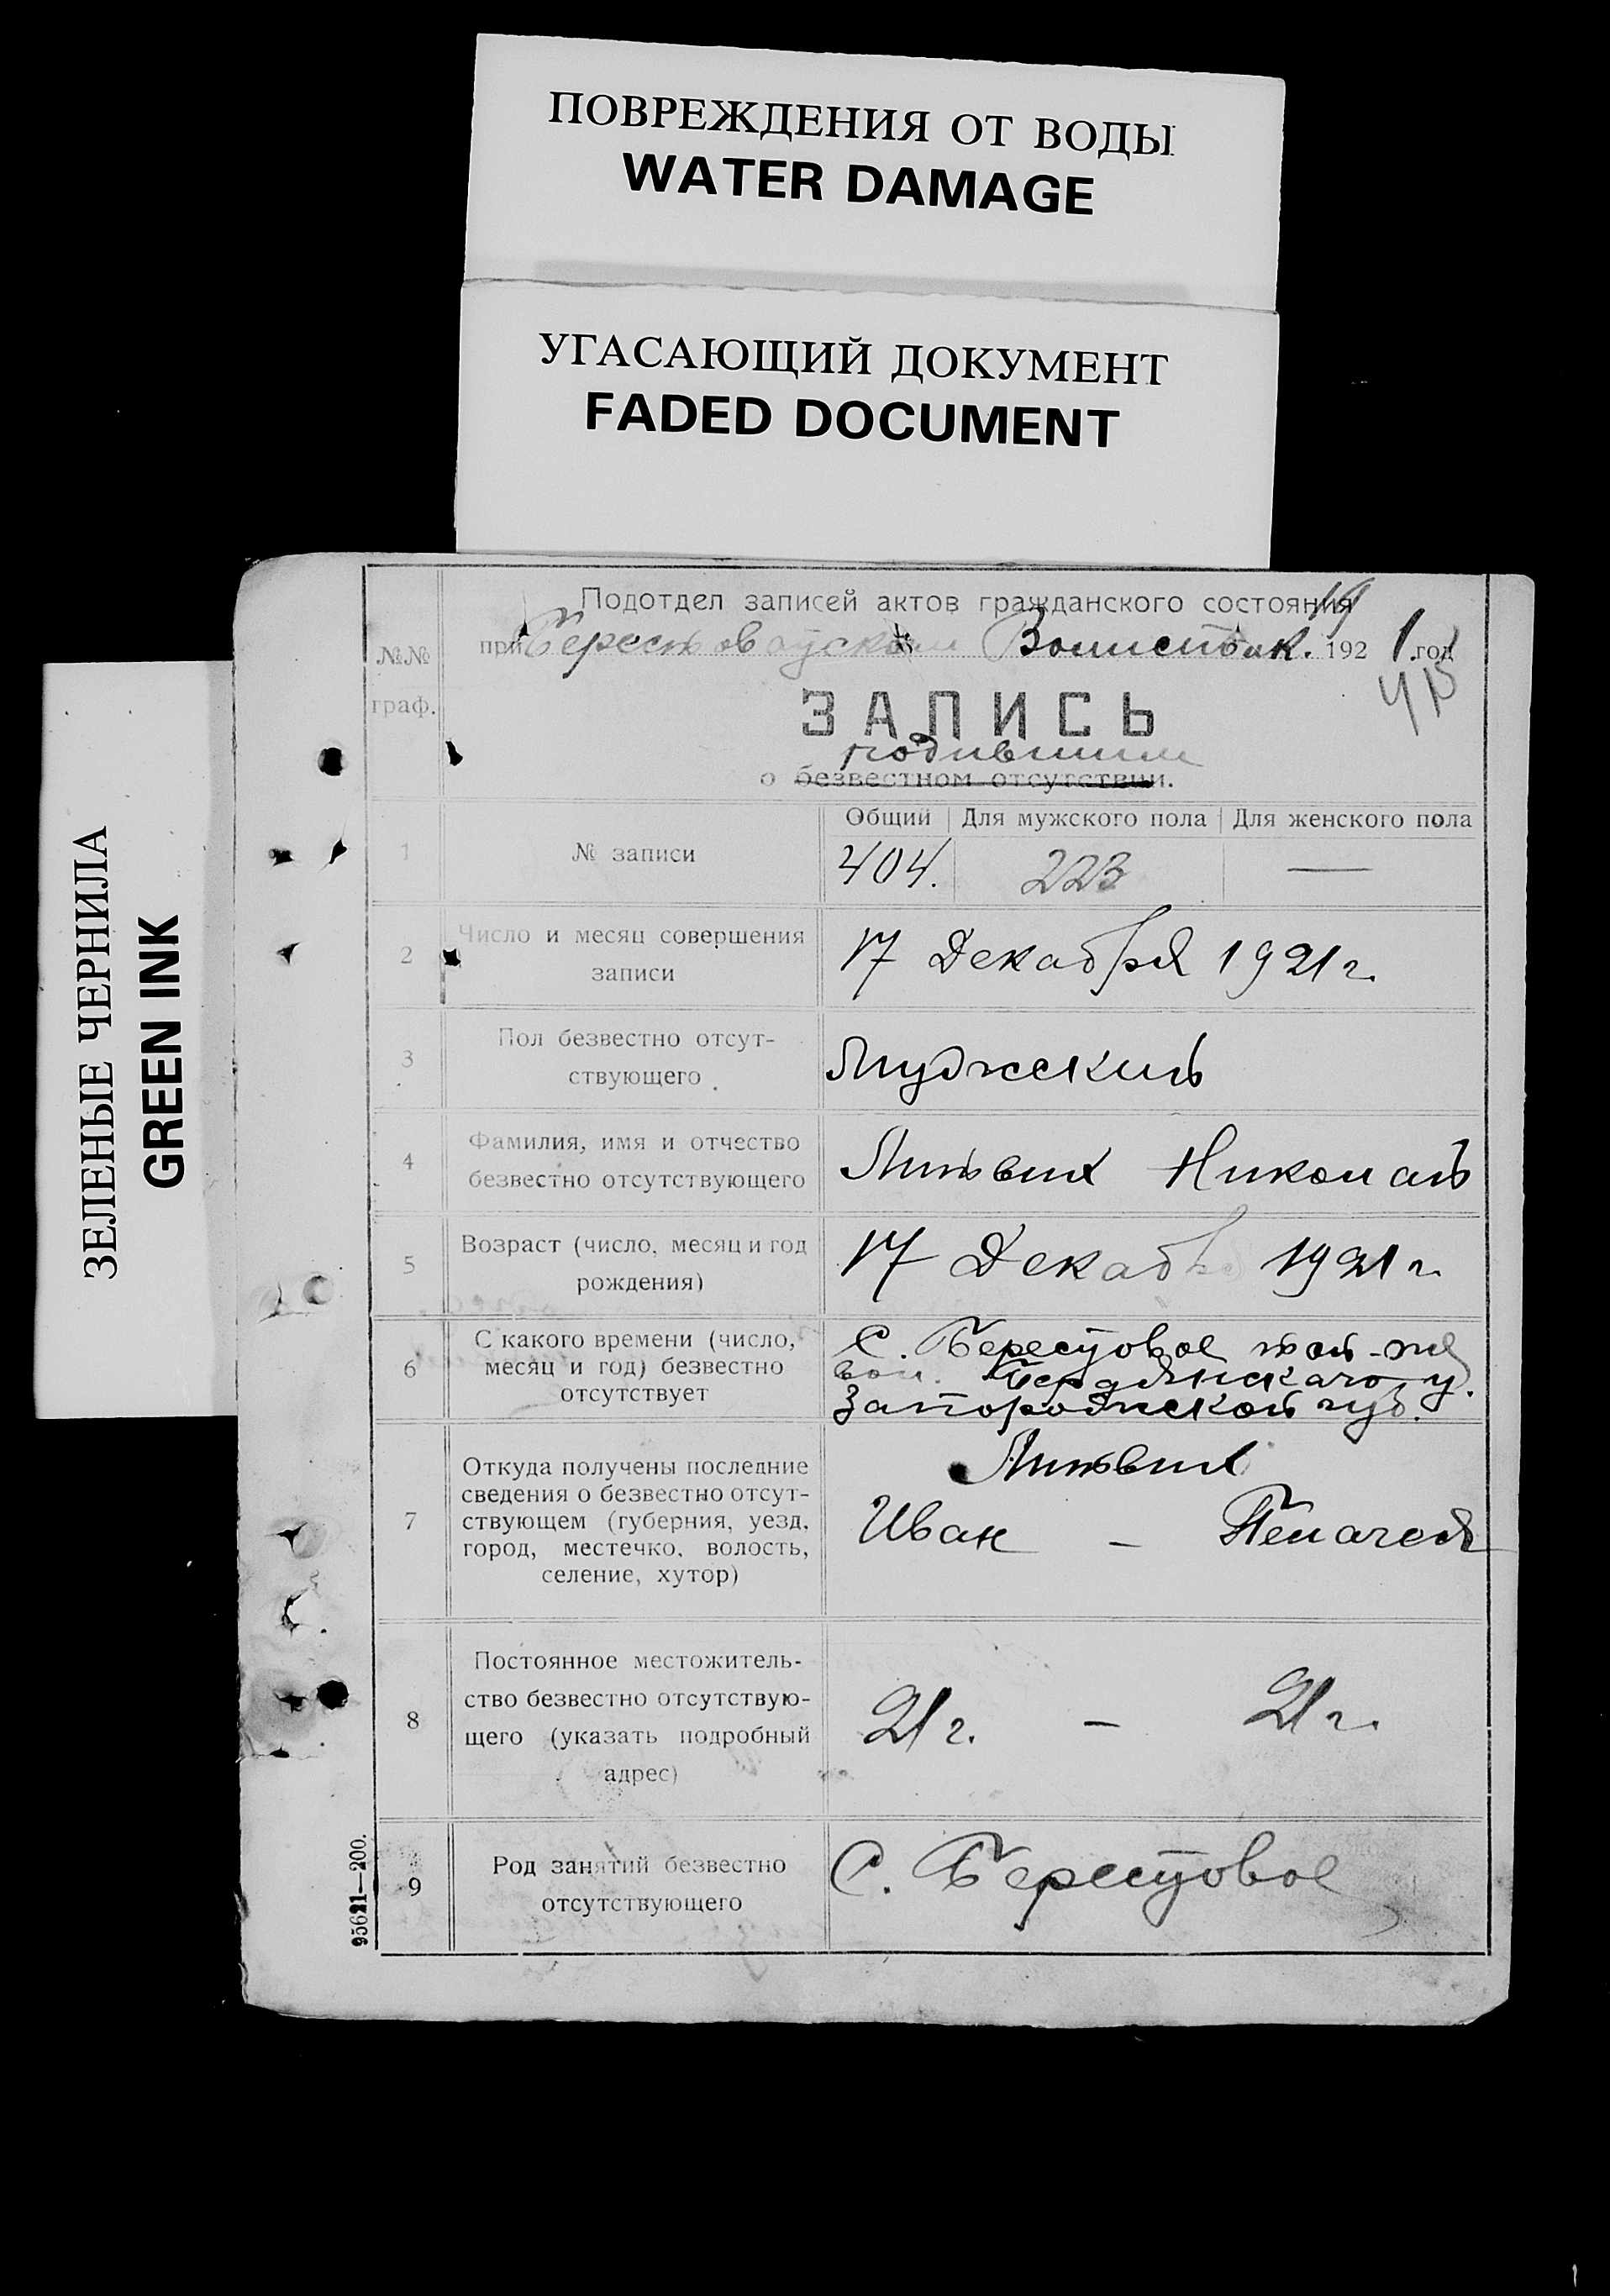 ПОВРЕЖДЕНИЯ ОТ ВОДЫ
WATER DAMAGE
УГАСАЮЩИЙ ДОКУМЕНТ
FADED DOCUMENT
ЗЕЛЕНЫЕ ЧЕРНИЛА
GREEN INK
Подотдел записей актов гражданского состояния
при 1921 год
№№
граф.
ЗАПИСЬ
родившим
о безвестном отсутствии.
Общий Для мужского пола Для женского пола
1 № записи 404. 223 —
2 Число и месяц совершения
записи
17 Декабря 1921 г.
3 Пол безвестно отсут-
ствующего
Мужский
4 Фамилия, имя и отчество
безвестно отсутствующего
Литвин Николай
5 Возраст (число, месяц и год
рождения)
17 Декаб 1921 г
6 С какого времени (число,
месяц и год) безвестно
отсутствует
С. Берестовое той-же
вол. Бердянскаго у.
Запорожской губ.
7 Откуда получены последние
сведения о безвестно отсут-
ствующем (губерния, уезд,
город, местечко, волость,
селение, хутор)
Литвин
Иван — Пелагея
8 Постоянное местожитель-
ство безвестно отсутствую-
щего (указать подробный
адрес)
21 г. — 21 г.
9 Род занятий безвестно
отсутствующего
С. Берестовое
95621—200.